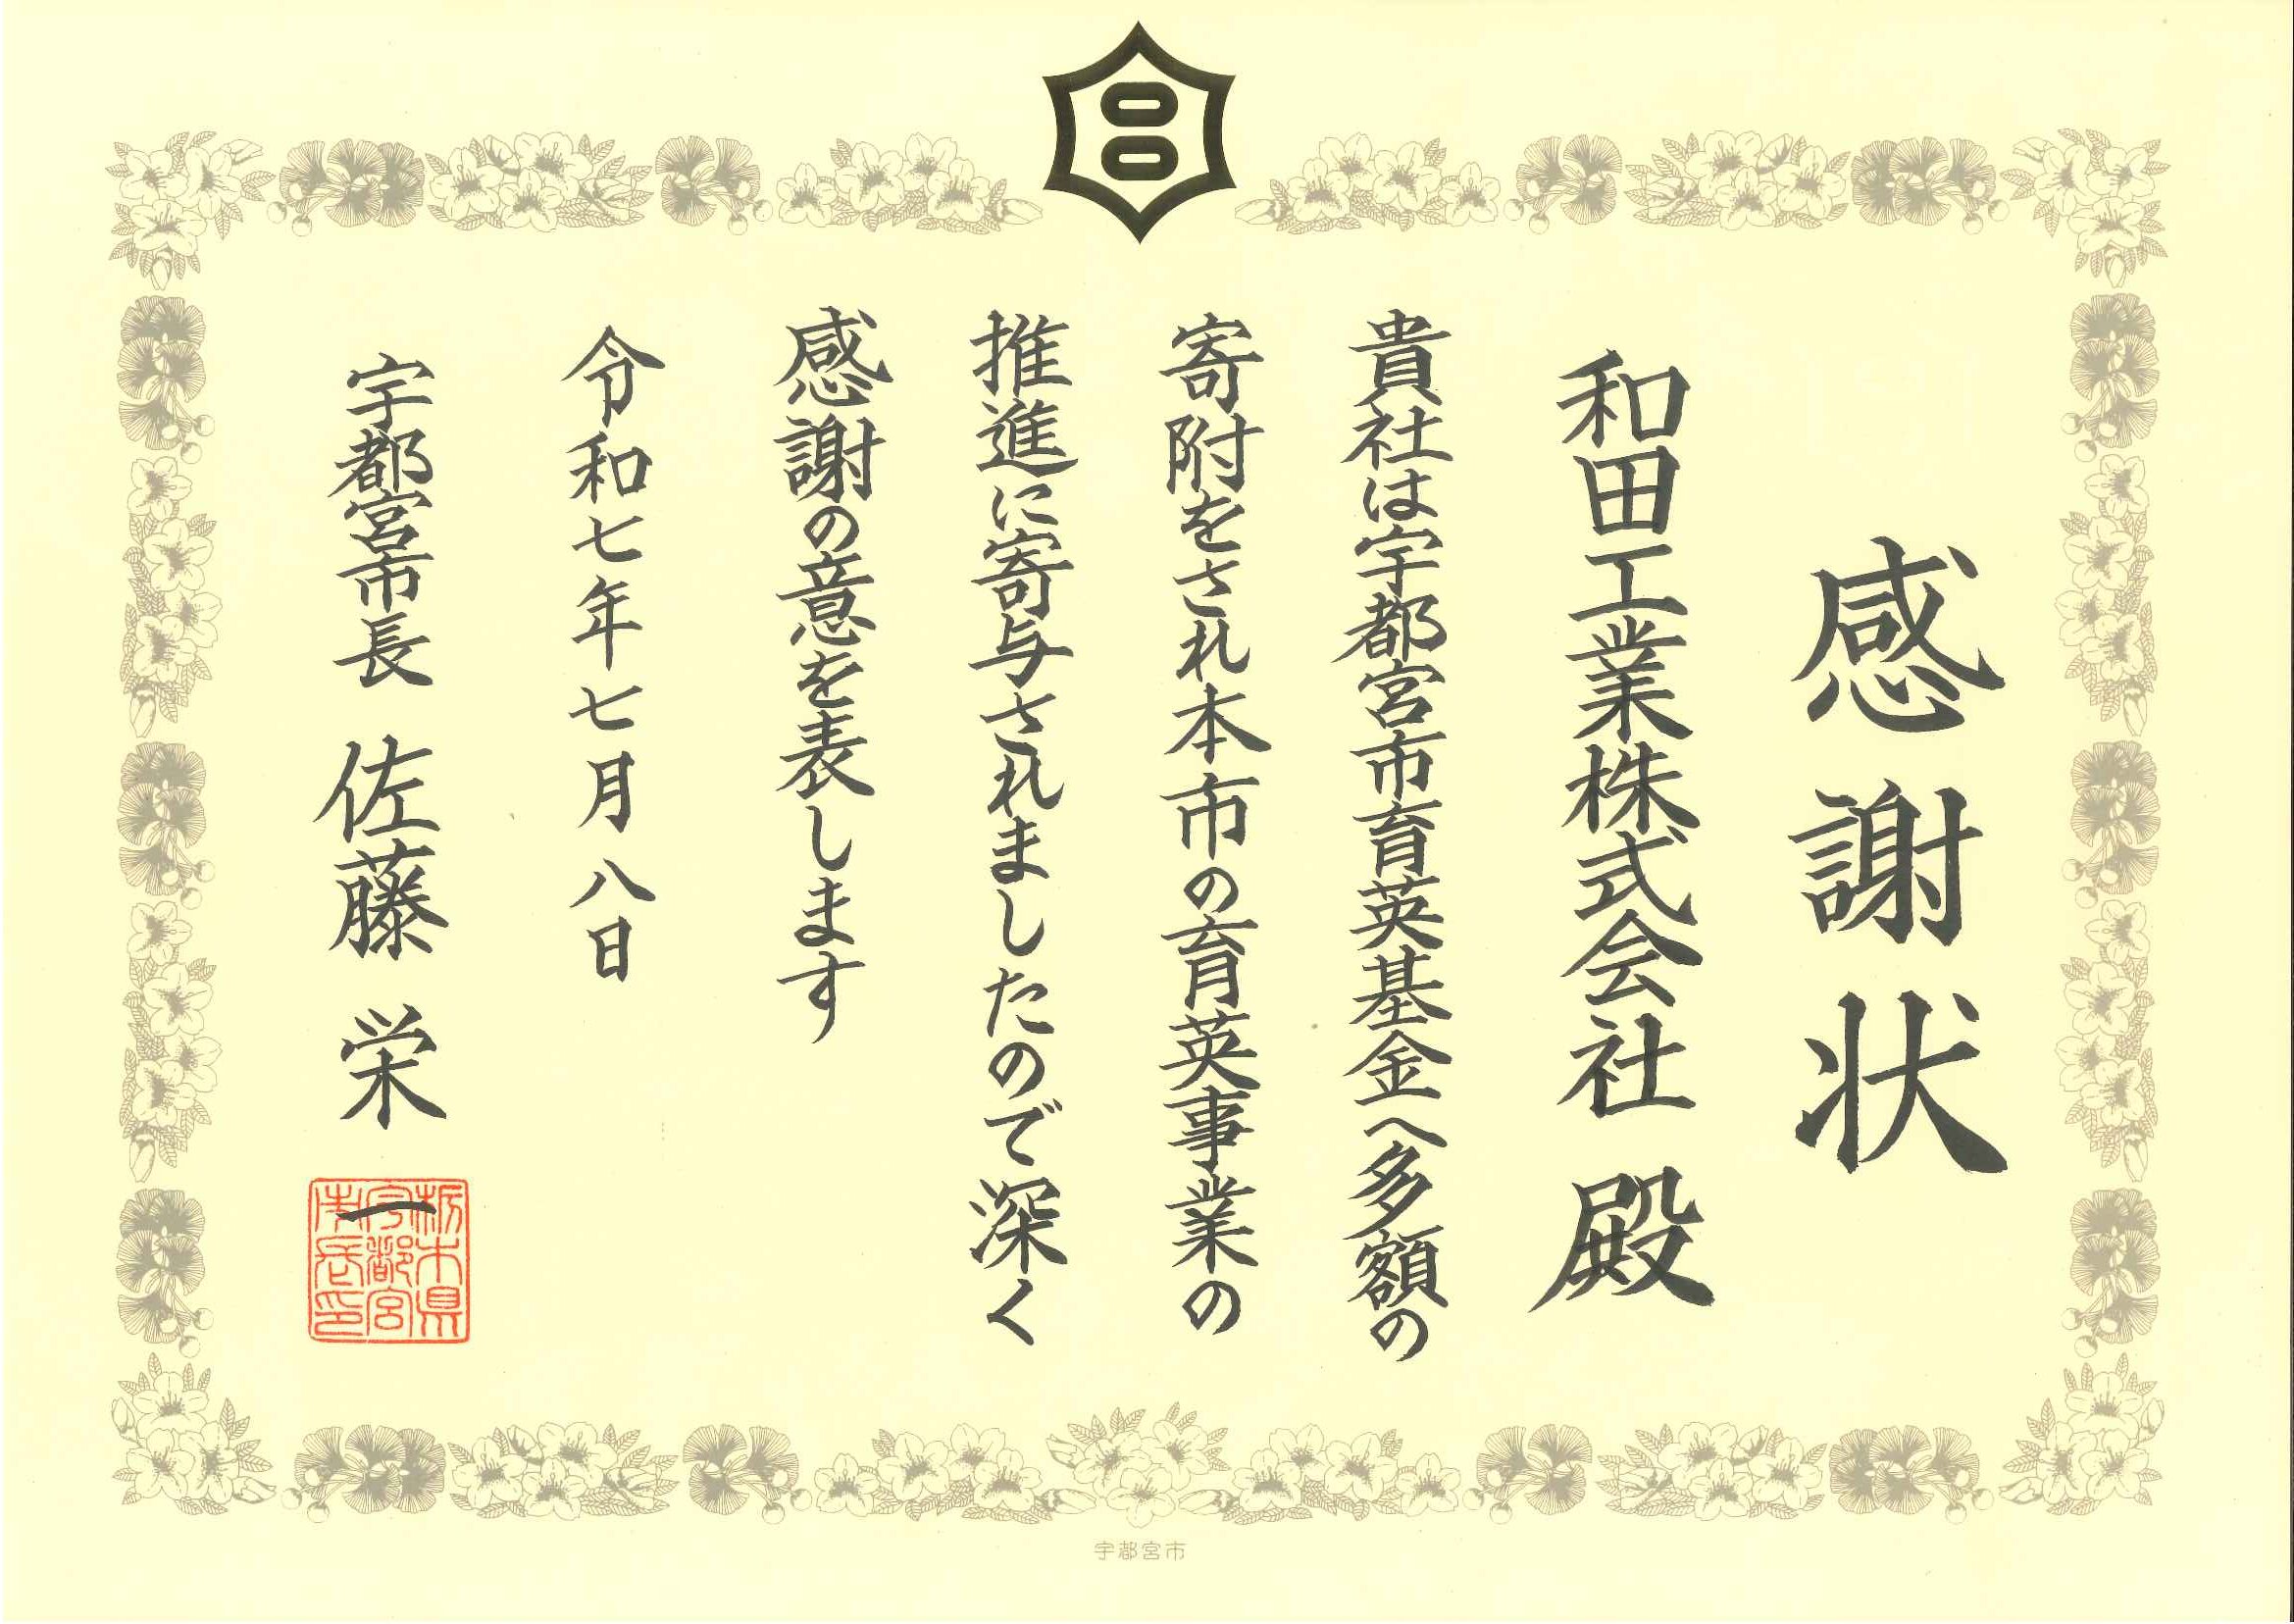 感謝状
和田工業株式会社 殿
貴社は宇都宮市育英基金へ多額の
寄附をされ本市の育英事業の
推進に寄与されましたので深く
感謝の意を表します
令和七年七月八日
宇都宮市長 佐藤栄一
栃木県
宇都宮
市長印
宇都宮市